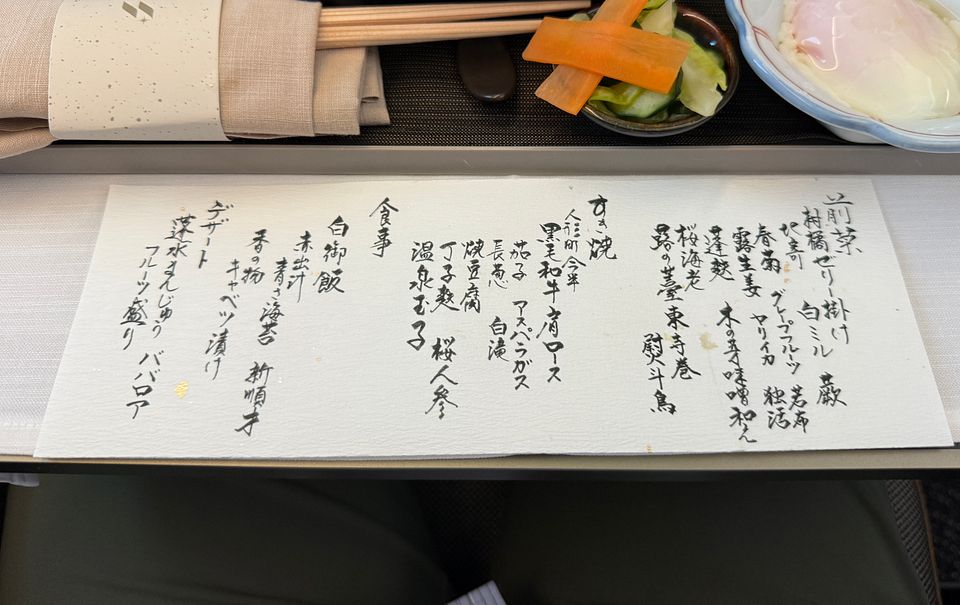 前菜
柑橘ゼリー掛け 白ミル 蕨
地蛸 グレープフルーツ 若布
春菊 ヤリイカ 独活
露生姜 木の芽味噌和え
蓬麩
桜海老
蕗の薹東寺巻 熨斗鳥
すき焼
人形町今半
黒毛和牛肩ロース
茄子 アスパラガス
長葱 白滝
焼豆腐
丁子麩 桜人参
温泉玉子
食事
白御飯
赤出汁
青さ海苔 新順才
香の物
キャベツ漬け
デザート
蓬水まんじゅう ババロア
フルーツ盛り